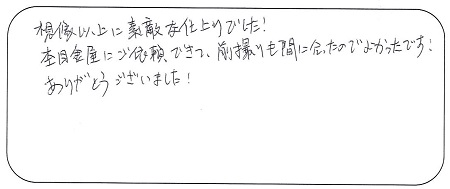 想像以上に素敵な仕上りでした！
本目金屋にご依頼できて、前撮りも間に合ったのでよかったです！
ありがとうございました！